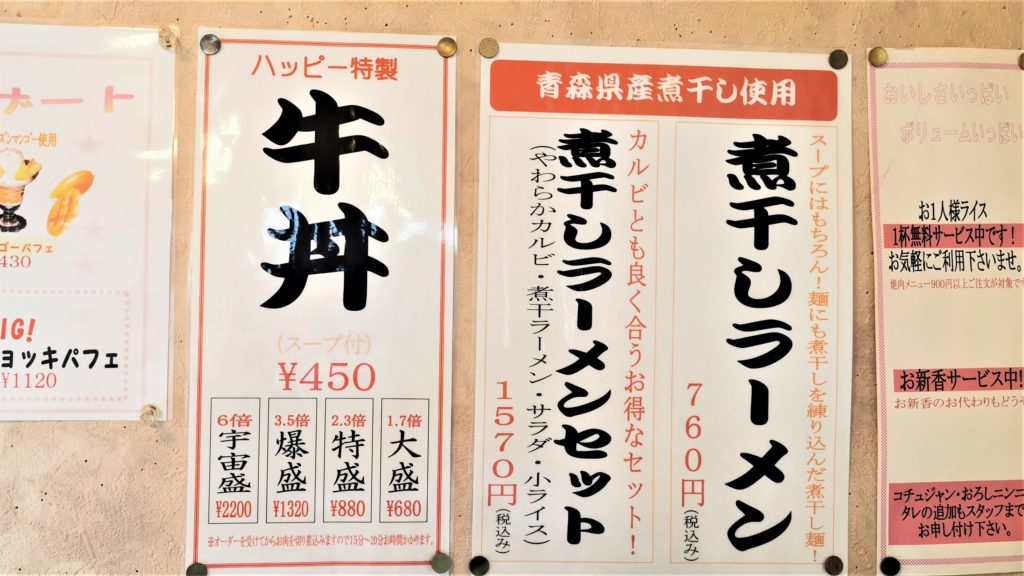 ゴーパフェ
430
IG!
ョッキパフェ
¥1120
ハッピー特製
牛丼
(スープ付)
¥450
1.7倍
大盛
¥680
2.3倍
特盛
¥880
3.5倍
爆盛
¥1320
6倍
宇宙盛
¥2200
※オーダーを受けてからお肉を切り煮込みますので15分～20分お時間かかります。
青森県産煮干し使用
スープにはもちろん!麺にも煮干しを練り込んだ煮干し麺!
煮干しラーメン
760円(税込み)
カルビとも良く合うお得なセット!
煮干しラーメンセット
(やわらかカルビ・煮干ラーメン・サラダ・小ライス)
1570円(税込み)
おいしさいっぱい
ボリュームいっぱい
お1人様ライス
1杯無料サービス中です!
お気軽にご利用下さいませ。
焼肉メニュー900円以上ご注文が対象で
お新香サービス中!
お新香のお代わりもどう
コチュジャン・おろしニンニ
タレの追加もスタッフまで
お申し付け下さい。